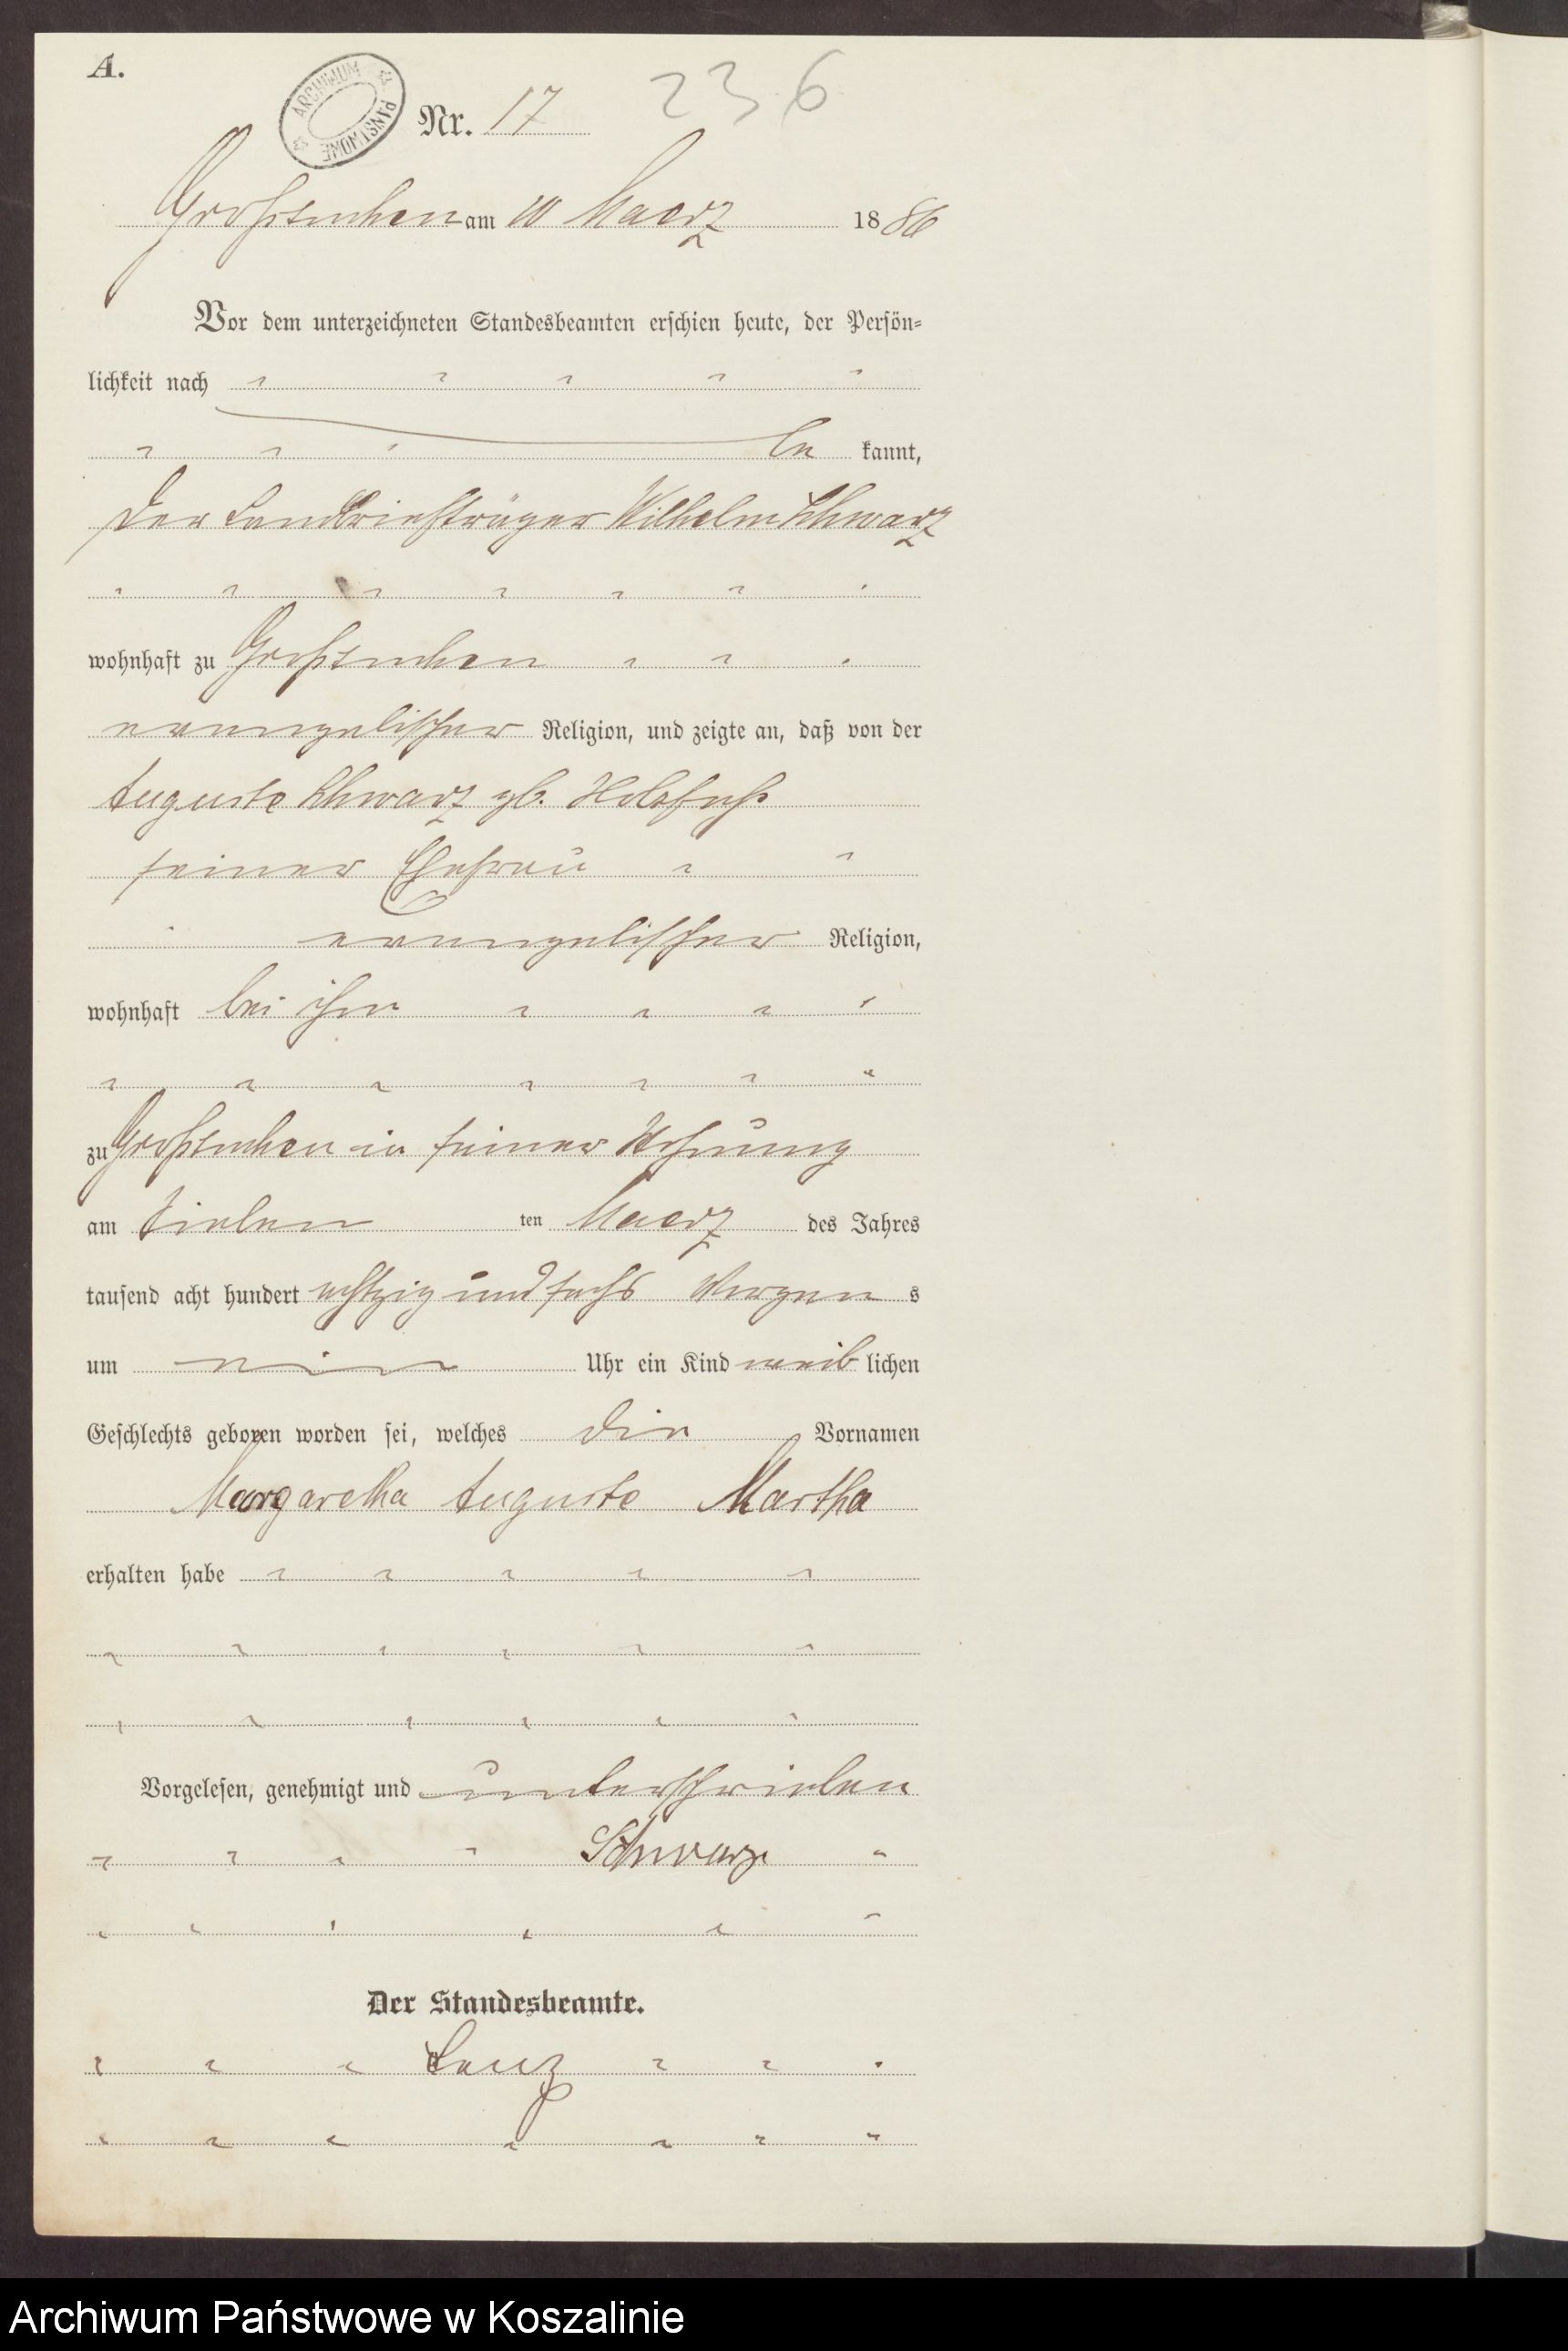 A.
ARCHIWUM PAŃSTWOWE
Nr. 17
236
Großtuchen am 10 Maerz 1886
Vor dem unterzeichneten Standesbeamten erschien heute, der Persön-
lichkeit nach
be kannt,
der Landbriefträger Wilhelm Schwarz
wohnhaft zu Großtuchen
evangelischer Religion, und zeigte an, daß von der
Auguste Schwarz geb. Holzfuß
seiner Ehefrau
evangelischer Religion,
wohnhaft bei ihm
zu Großtuchen in seiner Wohnung
am sieben ten Maerz des Jahres
tausend acht hundert achtzig und sechs Morgen s
um Uhr ein Kind weib lichen
Geschlechts geboren worden sei, welches die Vornamen
Margaretha Auguste Martha
erhalten habe
Vorgelesen, genehmigt und unterschrieben
Schwarz
Der Standesbeamte.
Archiwum Państwowe w Koszalinie